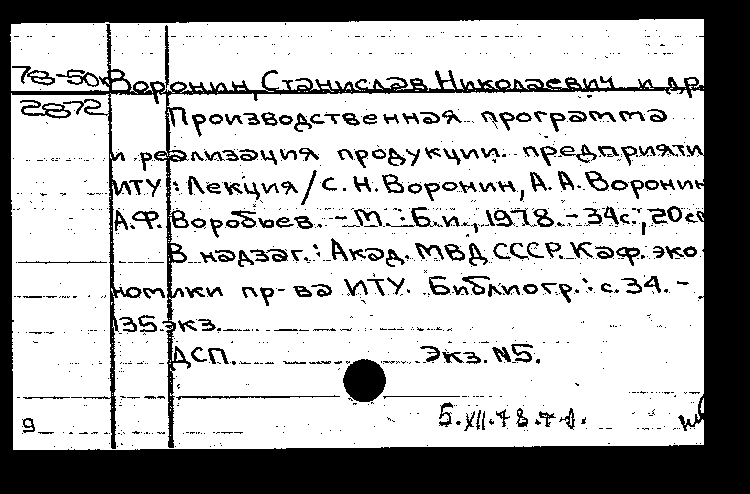 78-50к Воронин, Станислав Николаевич и др.
2872 Производственная программа
и реализация продукции предприяти
ИТУ: Лекция/С.Н.Воронин, А.А.Воронин
А.Ф.Воробьев. - М.: Б.и., 1978. - 34с.; 20см
В надзаг.: Акад. МВД СССР. Каф. эко-
номики пр-ва ИТУ. Библиогр.: с.34. -
135экз.
ДСП. Экз. N5.
5.XII.78.
9